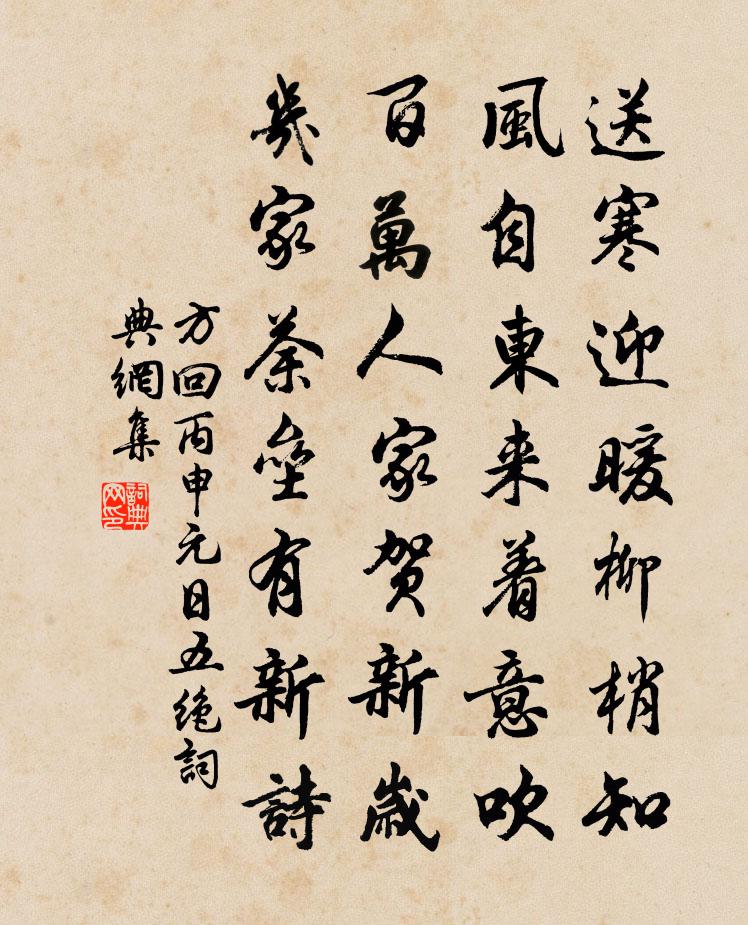 送寒迎暖柳梢知
風自東来着意吹
百萬人家賀新歲
幾家荼壘有新詩
方回丙申元日五絶詞
典網集
詞典网印